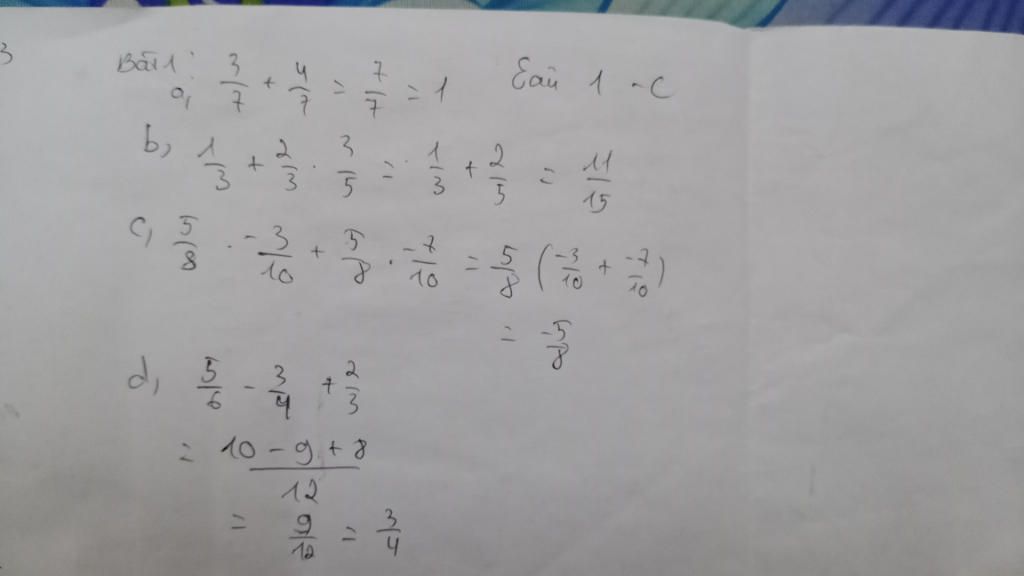 3
Bài 1:
a, 3/7 + 4/7 = 7/7 = 1
Câu 1 - C
b, 1/3 + 2/3 . 3/5 = 1/3 + 2/5 = 11/15
c, 5/8 . -3/10 + 5/8 . -7/10 = 5/8 (-3/10 + -7/10)
= -5/8
d, 5/6 - 3/4 + 2/3
= 10 - 9 + 8 / 12
= 9/12 = 3/4